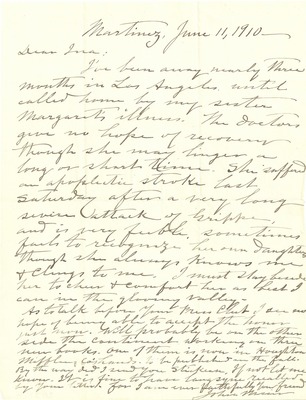 Martinez, June 11, 1910 -
Dear Ina:
I've been away nearly three
months in Los Angeles until
called home by my sister
Margarets illness. The doctors
give no hope of recovery
though she may linger a
long or short time. She suffered
an apoplectic stroke last
Saturday after a very long
severe attack of Grippe,
and is very feeble, sometimes
fails to recognize her own daughter
though she always knows me
& clings to me. I must stay beside
her to cheer & comfort her as best I
can in the gloomy valley.
As to talk before your Club, I see no
hope of being able to accept the honor
just now. Will probably be on the other
side the continent working on three
new books. One of them is now in Houghton
Mifflin Co's hands, to be published in the fall.
By the way did I send you Stickeen, if not let me
know. It is fine to have love
by your I am ever faithfully your friend
John Muir